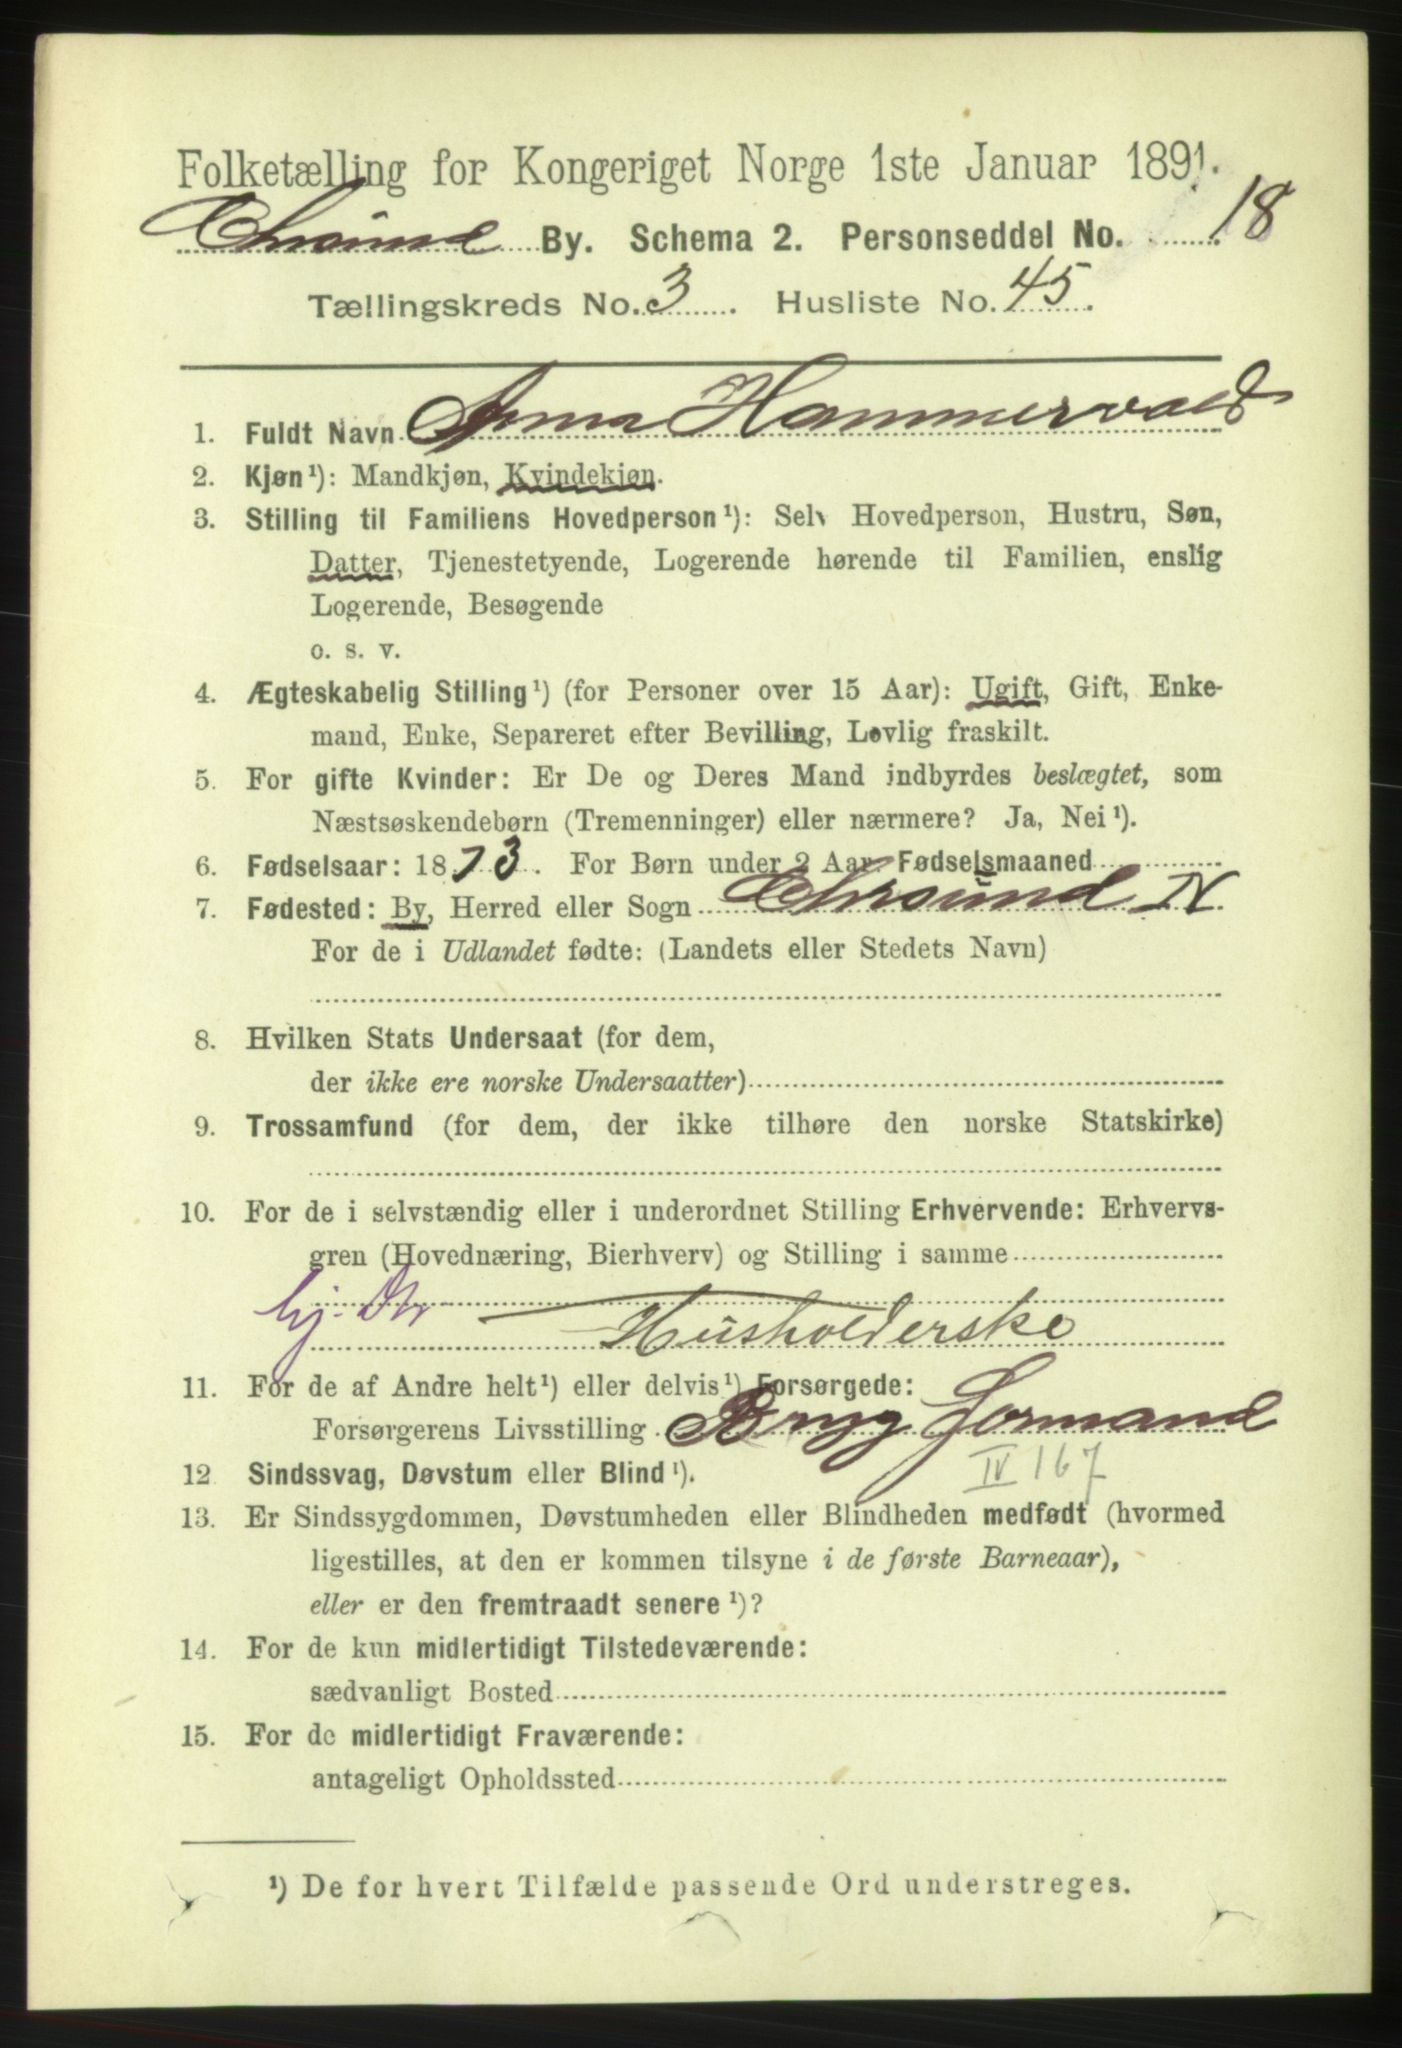 Folketælling for Kongeriget Norge 1ste Januar 1891.
Chrsund By. Schema 2. Personseddel No. 18
Tællingskreds No. 3. Husliste No. 45.
1. Fuldt Navn Anna Hammervold
2. Kjøn¹): Mandkjøn, Kvindekjøn.
3. Stilling til Familiens Hovedperson¹): Selv Hovedperson, Hustru, Søn,
Datter, Tjenestetyende, Logerende hørende til Familien, enslig
Logerende, Besøgende
o. s. v.
4. Ægteskabelig Stilling¹) (for Personer over 15 Aar): Ugift, Gift, Enke-
mand, Enke, Separeret efter Bevilling, Lovlig fraskilt.
5. For gifte Kvinder: Er De og Deres Mand indbyrdes beslægtet, som
Næstsøskendebørn (Tremenninger) eller nærmere? Ja, Nei¹).
6. Fødselsaar: 1873. For Børn under 2 Aar, Fødselsmaaned
7. Fødested: By, Herred eller Sogn Chrsund N
For de i Udlandet fødte: (Landets eller Stedets Navn)
8. Hvilken Stats Undersaat (for dem,
der ikke ere norske Undersaatter)
9. Trossamfund (for dem, der ikke tilhøre den norske Statskirke)
10. For de i selvstændig eller i underordnet Stilling Erhvervende: Erhvervs-
gren (Hovednæring, Bierhverv) og Stilling i samme
hj. Dtr
Husholderske
11. For de af Andre helt¹) eller delvis¹) Forsørgede:
Forsørgerens Livsstilling Bryg Formand
IV 167
12 Sindssvag, Døvstum eller Blind¹).
13. Er Sindssygdommen, Døvstumheden eller Blindheden medfødt (hvormed
ligestilles, at den er kommen tilsyne i de første Barneaar),
eller er den fremtraadt senere¹)?
14. For de kun midlertidigt Tilstedeværende:
sædvanligt Bosted
15. For de midlertidigt Fraværende:
antageligt Opholdssted
¹) De for hvert Tilfælde passende Ord understreges.